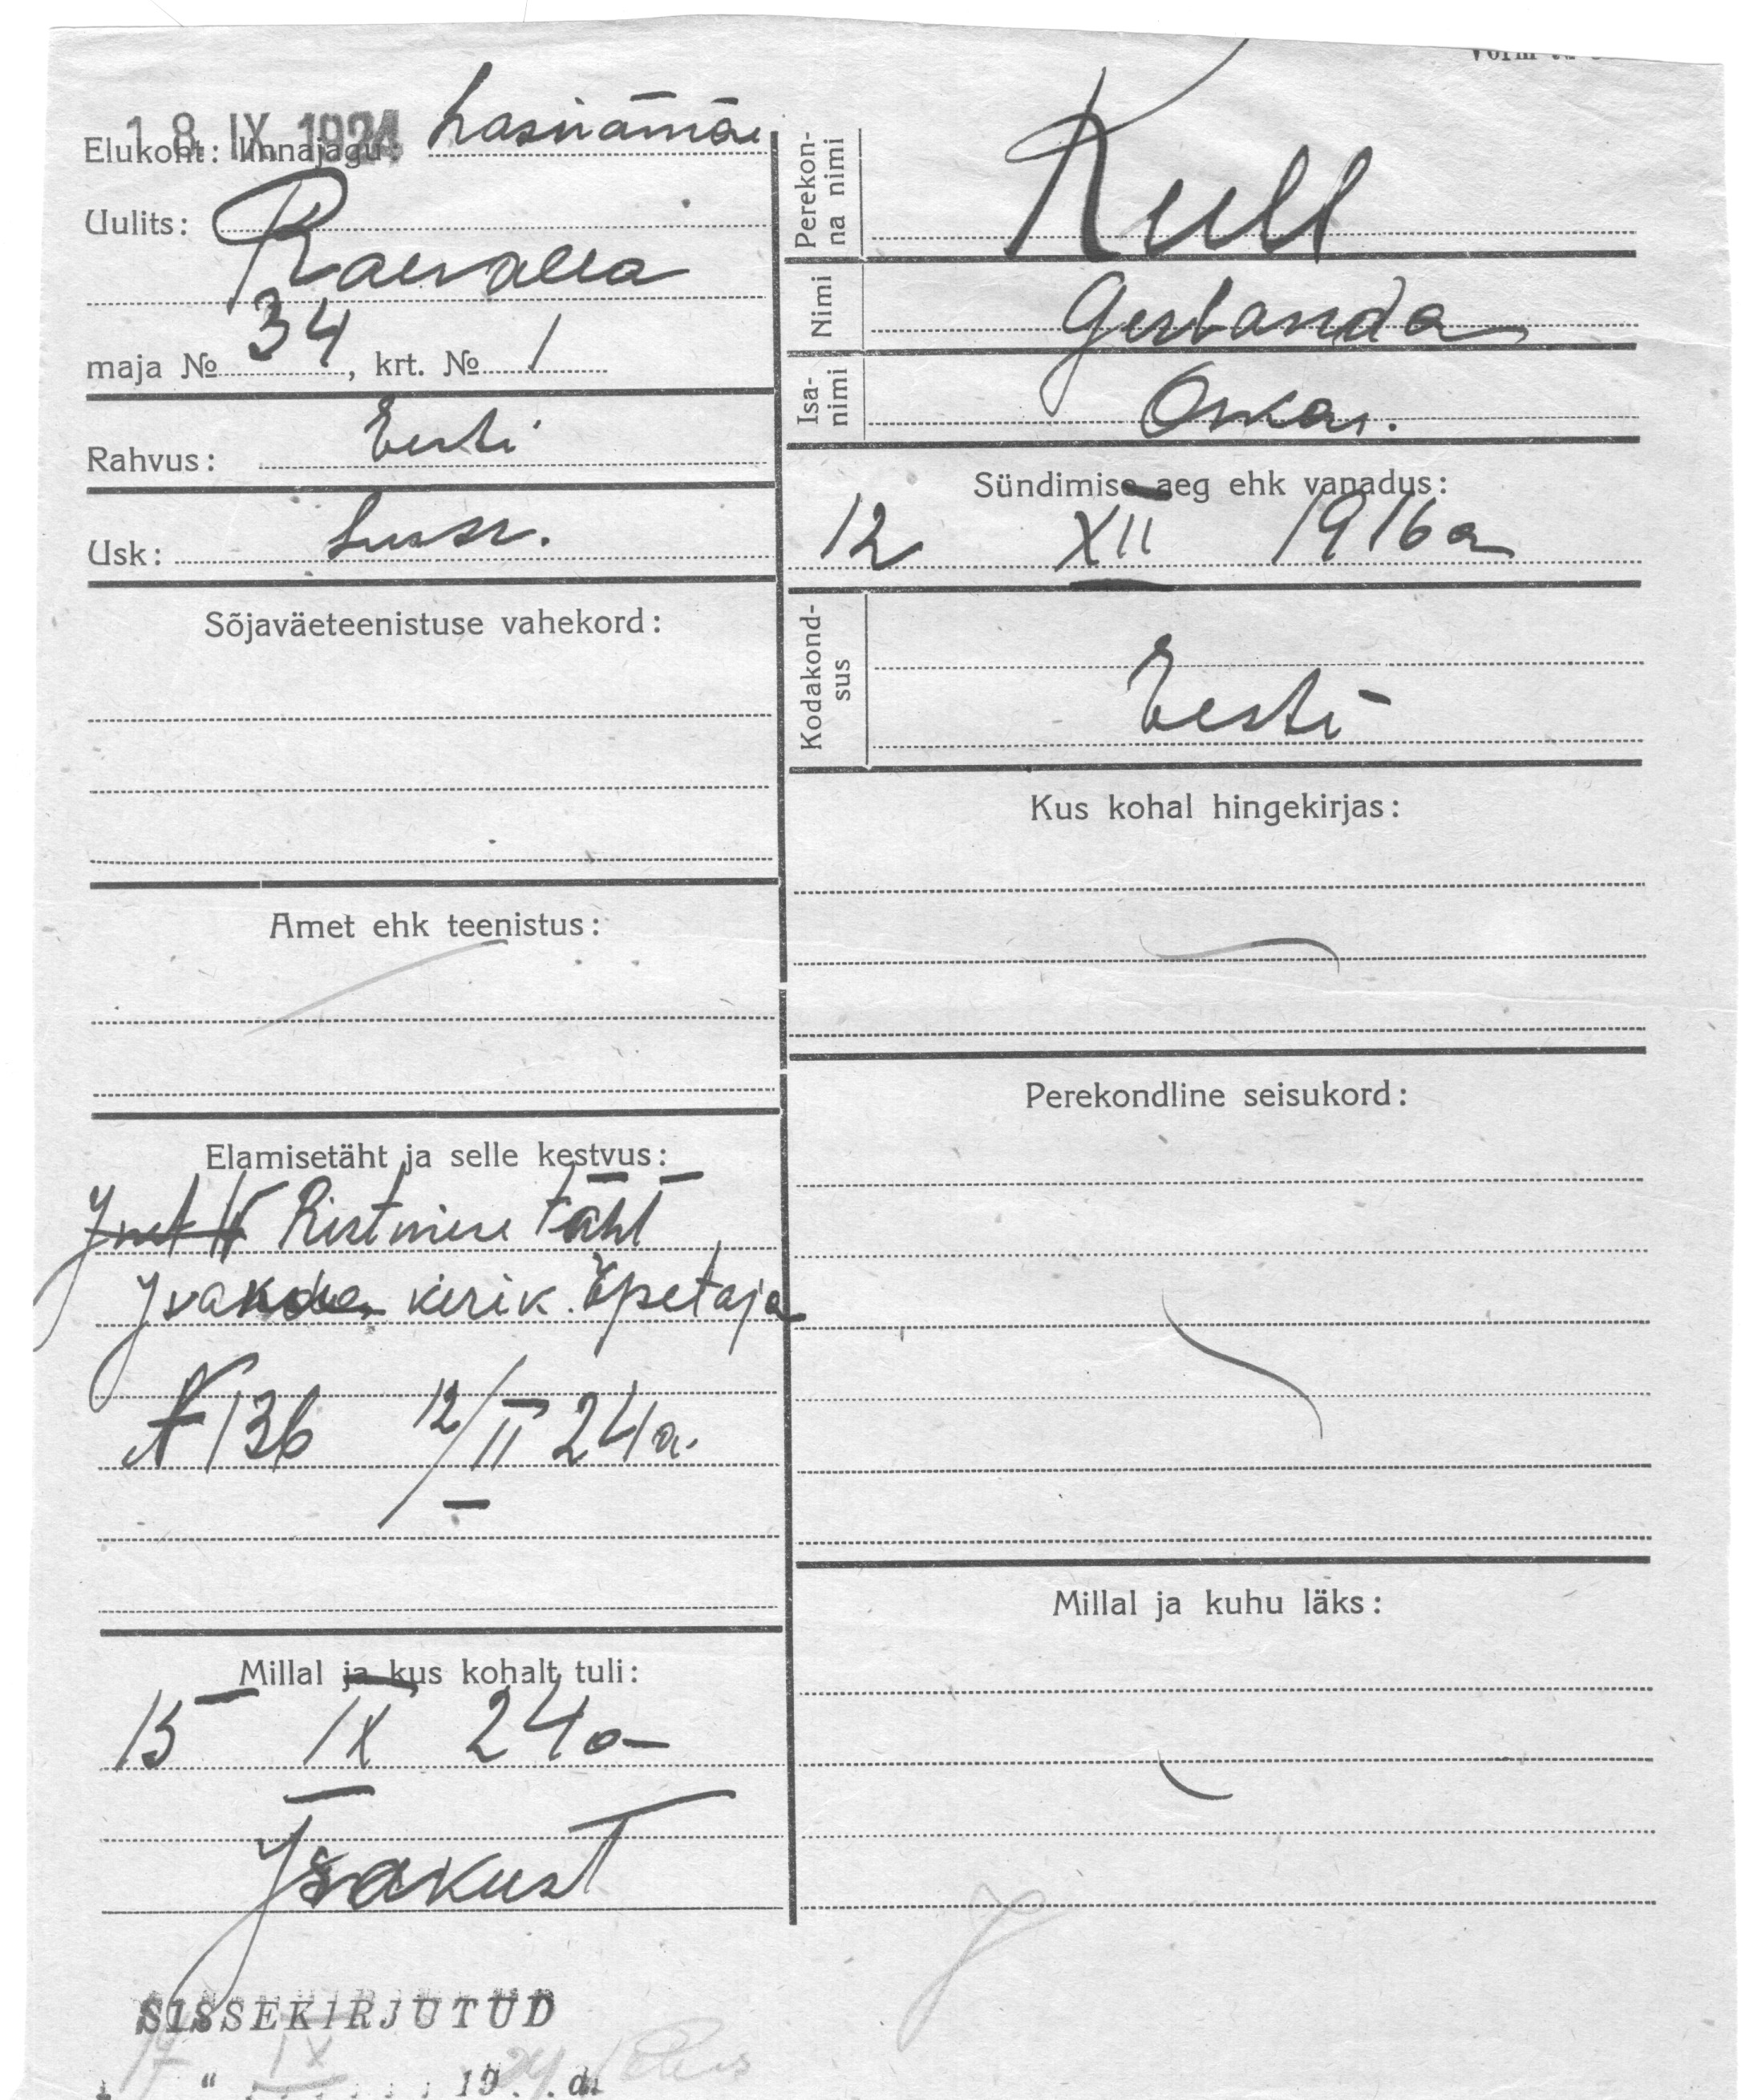 18. IX. 1924
Elukoht: linnajagu: Lasnamäe
Uulits:
Raevalla
maja № 34, krt. № 1
Rahvus: Eesti
Usk: Luter.
Sõjaväeteenistuse vahekord:
Amet ehk teenistus:
Elamisetäht ja selle kestvus:
Ristmise täht
kirik. Õpetaja
N 136 12/II 24 a.
Millal ja kus kohalt tuli:
15 IX 24 a
Isakust
SISSEKIRJUTUD
17 " IX 1924 a.
Perekonna nimi Kull
Nimi Gerbanda
Isanimi Oskar.
Sündimise aeg ehk vanadus:
12 XII 1916 a
Kodakondsus
Eesti
Kus kohal hingekirjas:
Perekondline seisukord:
Millal ja kuhu läks: